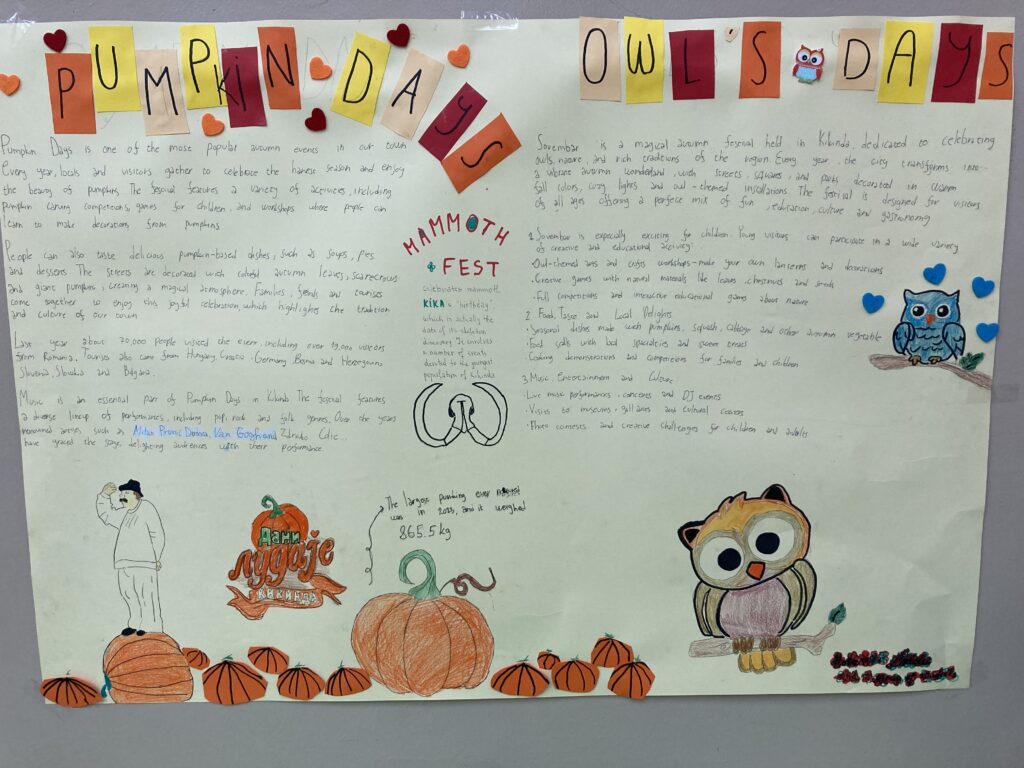 PUMPKIN DAYS
Pumpkin Days is one of the most popular autumn events in our town
Every year, locals and visitors gather to celebrate the harvest season and enjoy
the beauty of pumpkins. The festival features a variety of activities, including
pumpkin carving competitions, games for children, and workshops where people can
learn to make decorations from pumpkins
People can also taste delicious pumpkin-based dishes, such as soups, pies,
and desserts. The streets are decorated with colorful autumn leaves, scarecrows
and giant pumpkins, creating a magical atmosphere. Families, friends and tourists
come together to enjoy this joyful celebration, which highlights the tradition
and culture of our town
Last year about 20,000 people visited the event, including over 19,000 visitors
from Romania. Tourists also came from Hungary, Croatia, Germany, Bosnia and Herzegovina
Slovenia, Slovakia and Bulgaria.
Music is an essential part of Pumpkin Days in Kikinda. The festival features
a diverse lineup of performances, including pop, rock and folk genres. Over the years
renowned artists such as Van Gogh and Zdravko Colic
have graced the stage, delighting audiences with their performance.
MAMMOTH
FEST
celebrates mammoth
KIKA's "birthday",
which is actually the
date of its skeleton
discovery. It involves
a number of events
devoted to the youngest
population of Kikinda
Дани
лудаје
КИКИНДА
The largest pumpking ever
was in 2023, and it weighed
865.5kg
OWL'S DAYS
Sovembar is a magical autumn festival held in Kikinda, dedicated to celebrating
owls, nature, and rich traditions of the region. Every year, the city transforms into
a vibrant autumn wonderland, with streets, squares, and parks decorated in
fall colors, cozy lights and owl-themed installations. The festival is designed for visitors
of all ages offering a perfect mix of fun, education, culture and gastronomy
1. Sovembar is especially exciting for children. Young visitors can participate in a wide variety
of creative and educational activity:
·Owl-themed arts and crafts workshops-make your own lanterns and decorations
·Creative games with natural materials like leaves, chestnuts and seeds
·Full competitions and interactive educational games about nature
2. Food, Taste and Local Delights
·Seasonal dishes made with pumpkins, squash, cabbage and other autumn vegetable
·Food stalls with local specialties and sweet treats
·Cooking demonstrations and competitions for families and children
3. Music, Entertainment and Culture
·Live music performances, concerts and DJ events
·Visits to museums, galleries and cultural centers
·Photo contests and creative challenges for children and adults